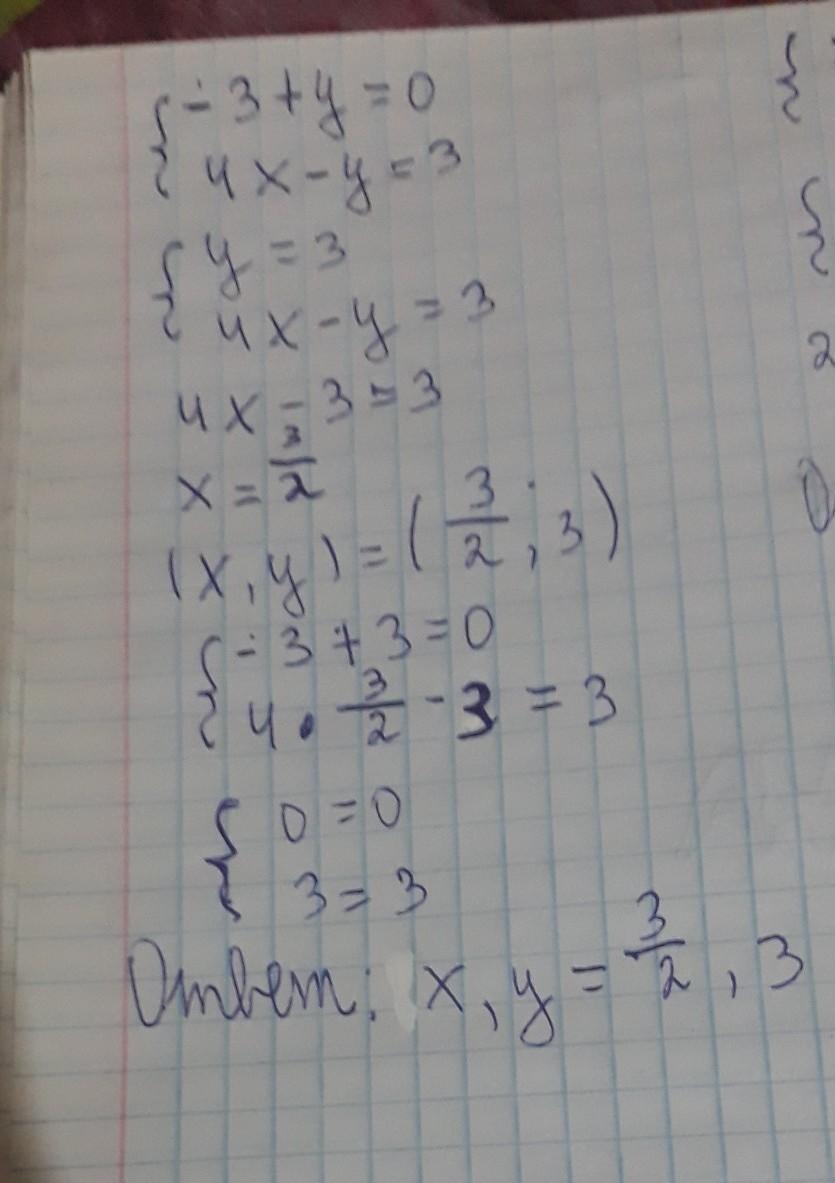 { - 3 + y = 0
4x - y = 3
{ y = 3
4x - y = 3
4x - 3 = 3
x = 3/2
(x, y) = (3/2; 3)
{ - 3 + 3 = 0
4 • 3/2 - 3 = 3
{ 0 = 0
3 = 3
Ответ: x, y = 3/2, 3
{
{
2